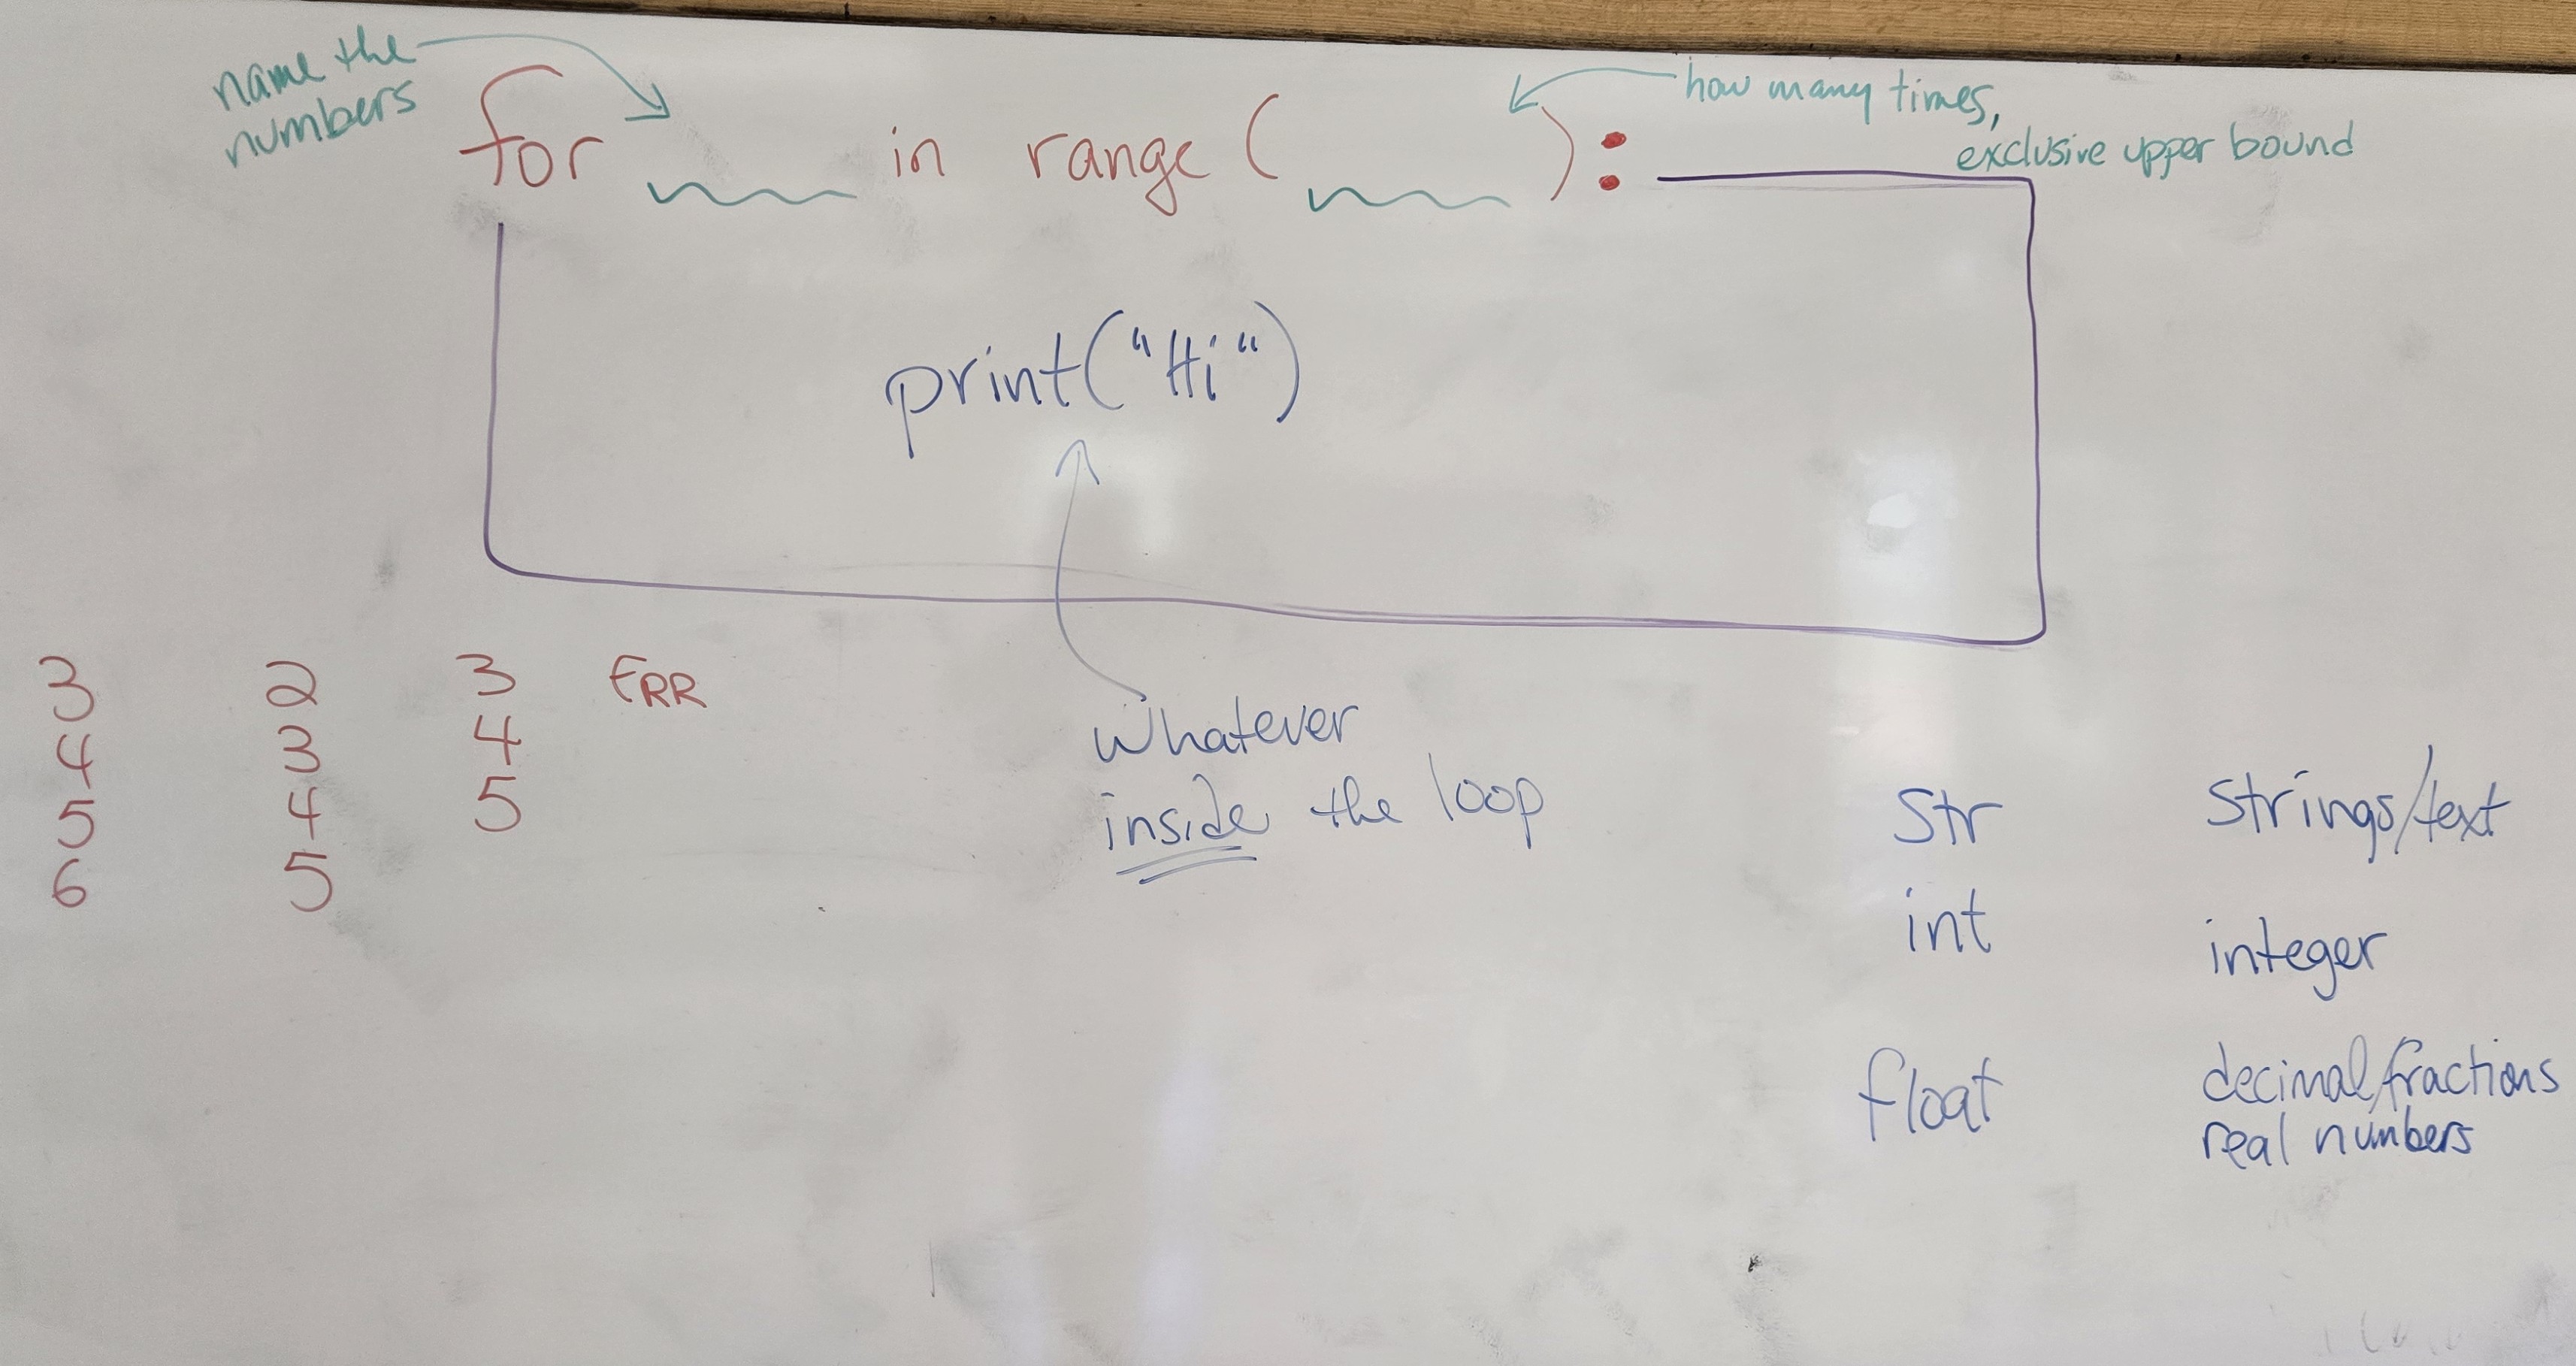 name the
numbers
for ___ in range ( ___ ) :
how many times,
exclusive upper bound
print("Hi")
whatever
inside the loop
3 2 3 ERR
4 3 4
5 4 5
6 5
Str strings/text
int integer
float decimal/fractions
real numbers